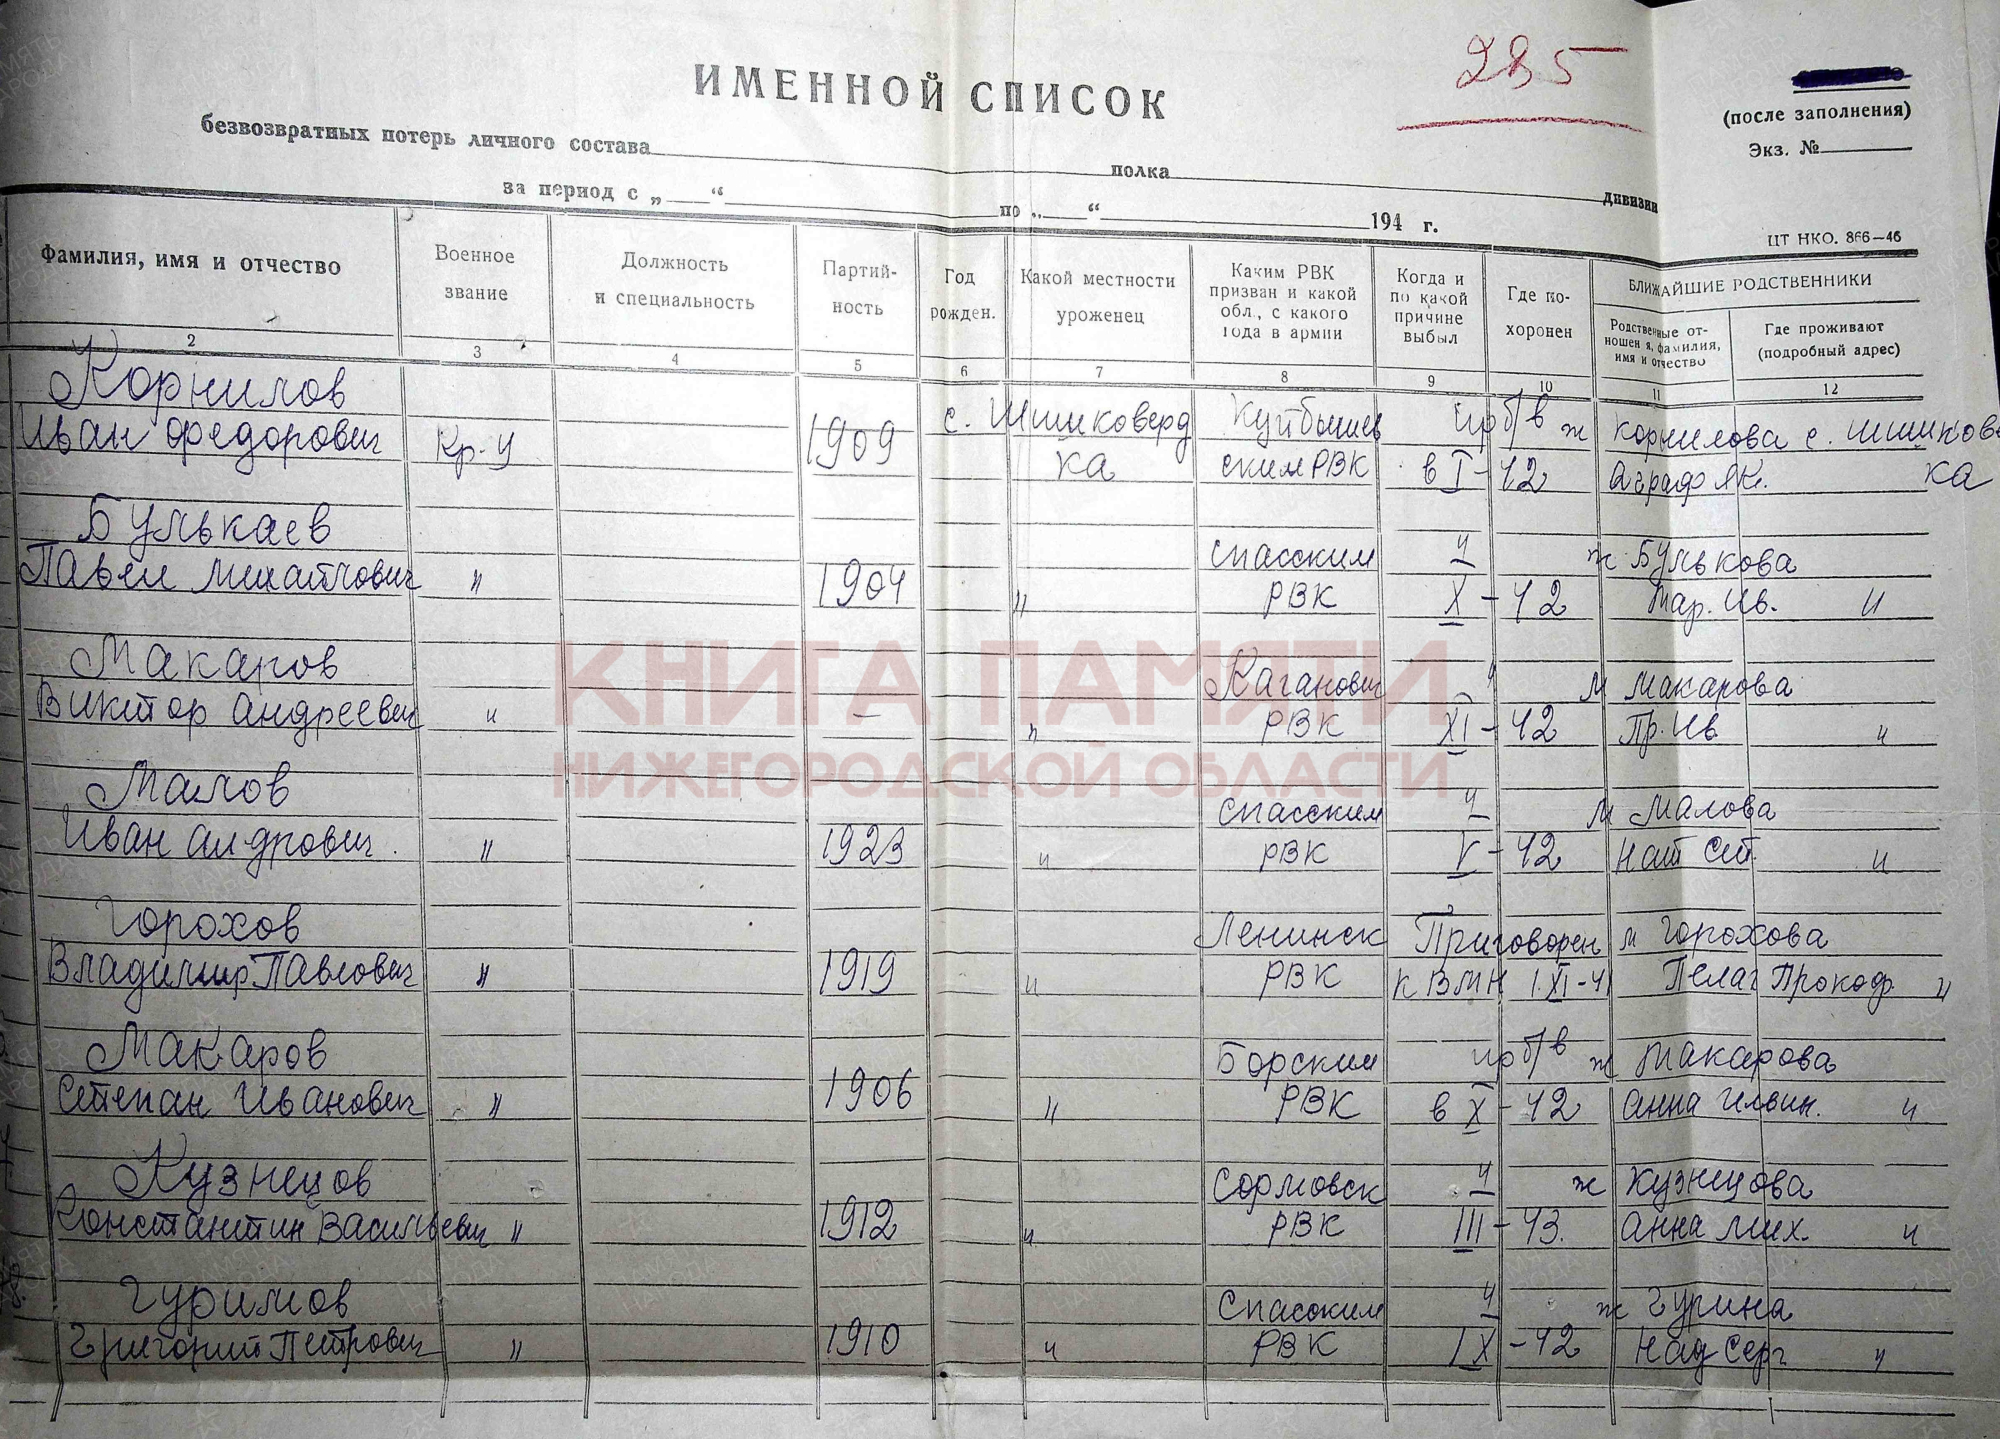 285
(после заполнения)
Экз. №
ИМЕННОЙ СПИСОК
безвозвратных потерь личного состава полка дивизии
за период с „ “ по „ “ 194 г.
ЦТ НКО. 866—46
Фамилия, имя и отчество
Военное звание
Должность и специальность
Партий-ность
Год рожден.
Какой местности уроженец
Каким РВК призван и какой обл., с какого года в армии
Когда и по какой причине выбыл
Где по-хоронен
БЛИЖАЙШИЕ РОДСТВЕННИКИ
Родственные от-ношения, фамилия, имя и отчество
Где проживают (подробный адрес)
2 3 4 5 6 7 8 9 10 11 12
Корнилов с. Шишковерд Куйбышев пр б/в ж Корнилова с. Шишков
Иван Федорович Кр-ц 1909 ка ским РВК в I-42 Аграф Як. ка
Булькаев Спасским ж Булькова
Павел Михайлович " 1904 " РВК X-42 Мар. Ив. "
Макаров Каганович " м Макарова
Виктор Андреевич " — " РВК XI-42 Пр. Ив "
Малов Спасским " м Малова
Иван Ал-дрович " 1923 " РВК V-42 "
Горохов Ленинск Приговорен м Горохова
Владимир Павлович " 1919 " РВК к ВМН 1.XI-41 Пелаг Прокоф "
Макаров Борским пр б/в ж Макарова
Степан Иванович " 1906 " РВК в X-42 Анна "
Кузнецов Сормовск " ж Кузнецова
Константин Васильевич " 1912 " РВК III-43. Анна Мих. "
Гуримов Спасским " ж Гурина
Григорий Петрович " 1910 " РВК IX-42 Над Серг "
КНИГА ПАМЯТИ
НИЖЕГОРОДСКОЙ ОБЛАСТИ